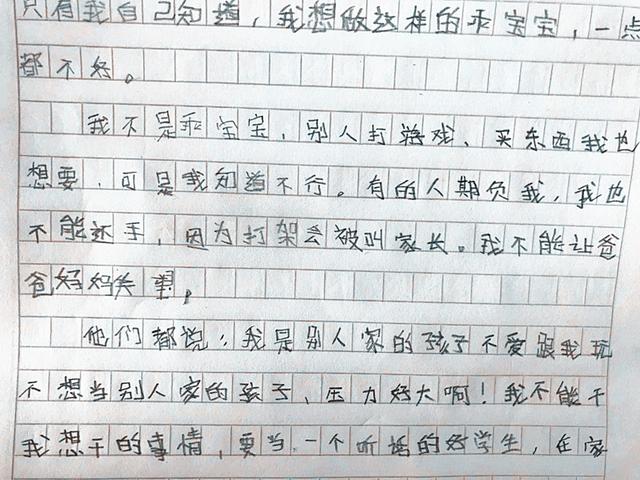 只有我自己知道，我想做这样的乖宝宝，一点
都不好。
我不是乖宝宝，别人打游戏、买东西我也
想要，可是我知道不行。有的人期负我，我也
不能还手，因为打架会被叫家长。我不能让爸
爸妈妈失望。
他们都说：我是别人家的孩子不爱跟我玩
不想当别人家的孩子，压力好大啊！我不能干
我想干的事情，要当一个听话的好学生，在家